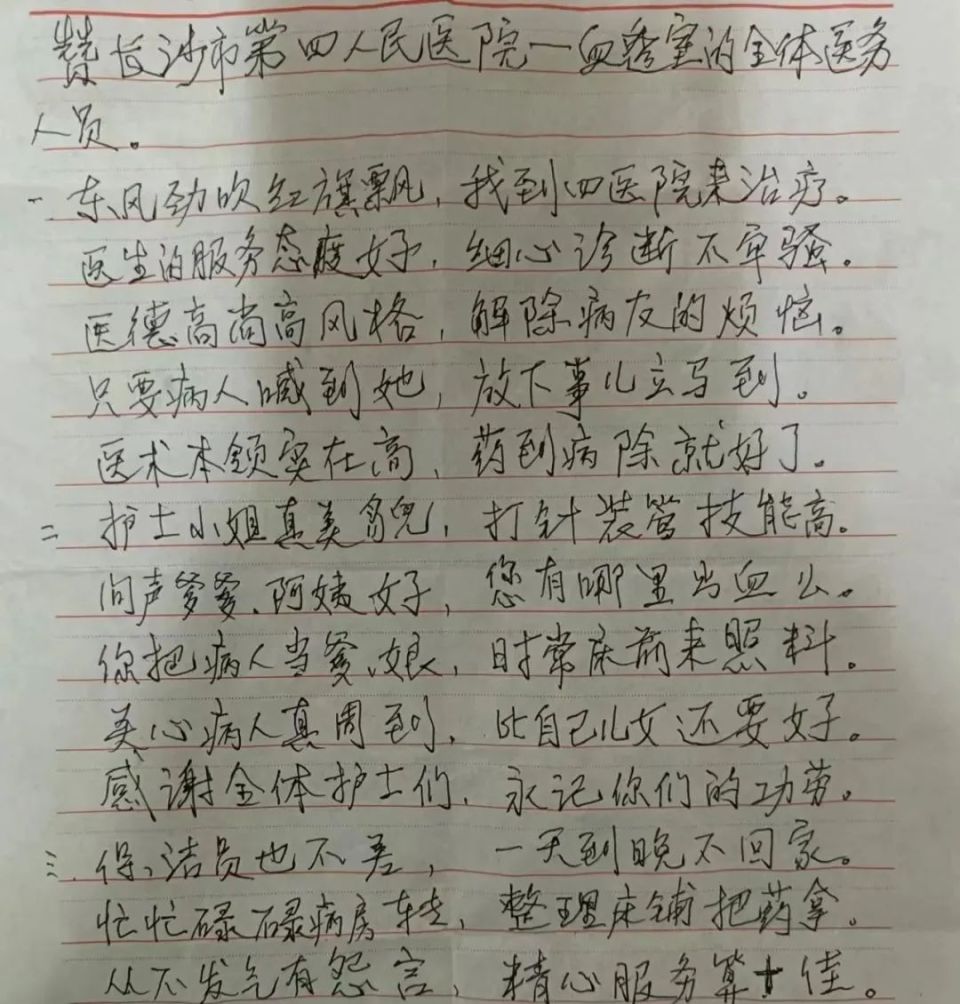 赞长沙市第四人民医院一血透室的全体医务
人员。
一、东风劲吹红旗飘，我到四医院来治疗。
医生的服务态度好，细心诊断不牢骚。
医德高尚高风格，解除病友的烦恼。
只要病人喊到她，放下事儿立马到。
医术本领实在高，药到病除就好了。
二、护士小姐真美貌，打针装管技能高。
问声爹爹、阿姨好，您有哪里出血么。
你把病人当爹、娘，时常床前来照料。
关心病人真周到，比自己儿女还要好。
感谢全体护士们，永记你们的功劳。
三、保洁员也不差，一天到晚不回家。
忙忙碌碌病房转，整理床铺把药拿。
从不发气有怨言，精心服务算十佳。